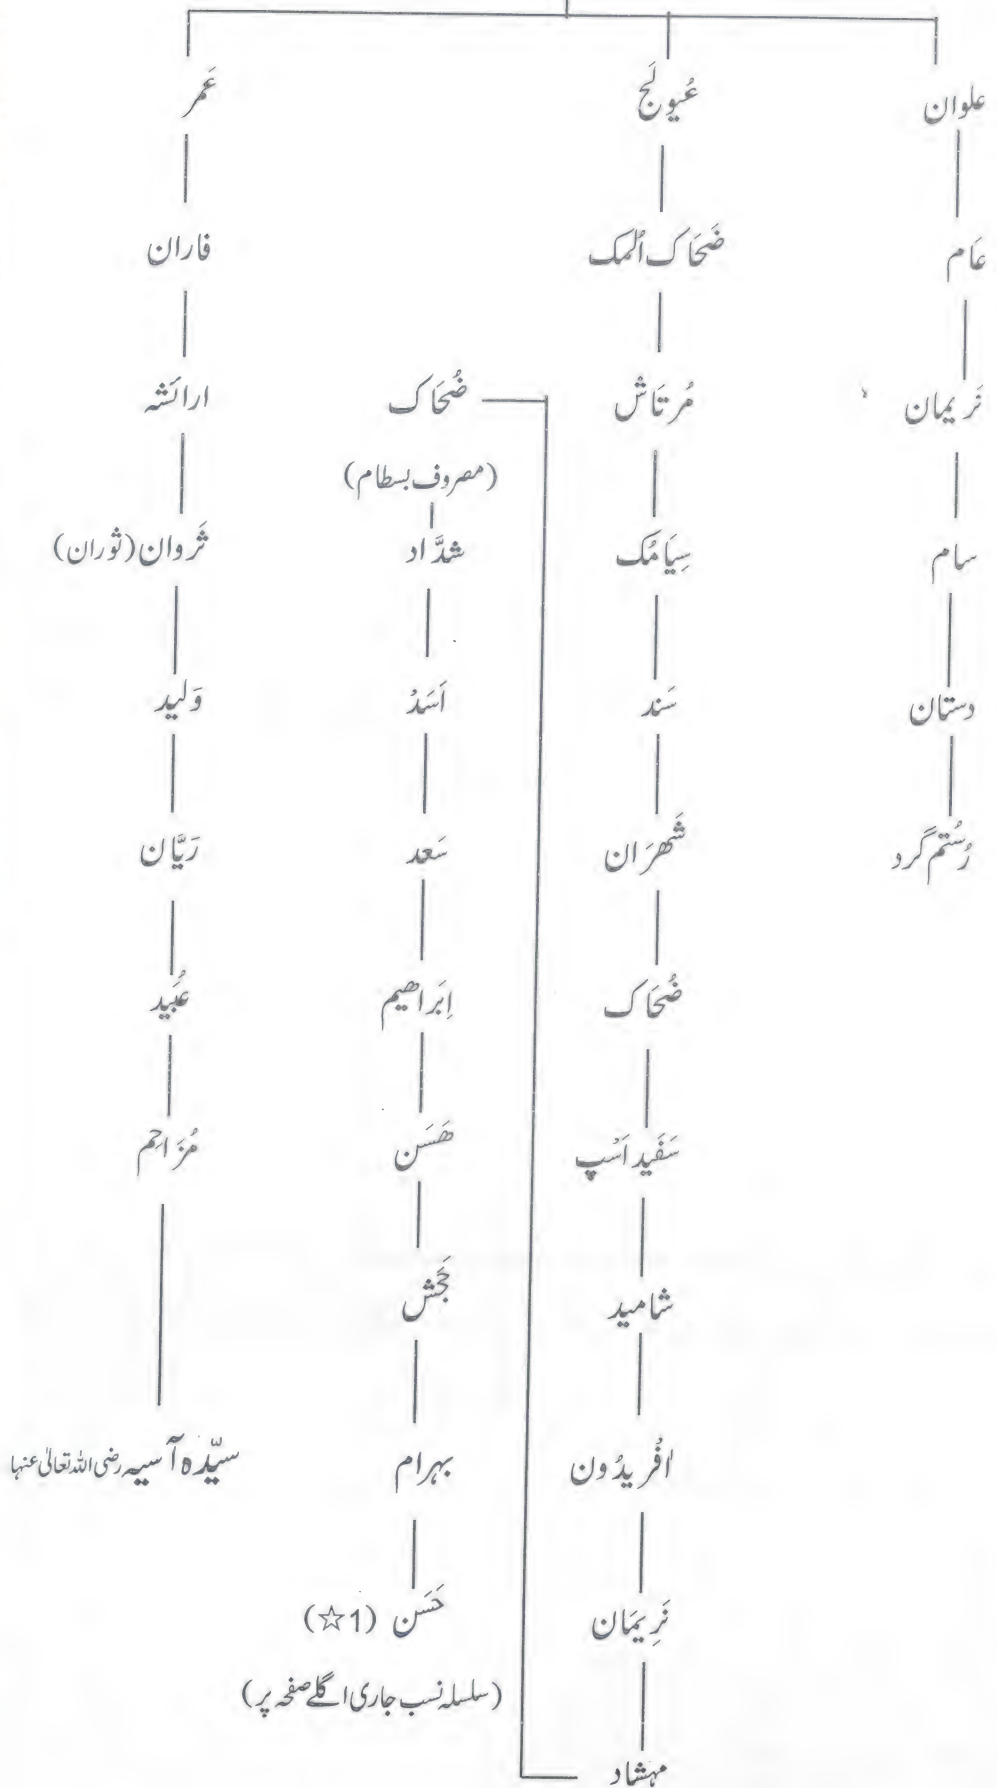 علوان
عَام
نَریمان
سام
دستان
رُستم گرد
عُیولَج
ضَحَاک اُلمک
مُرتَاش
سِیَامُک
سَند
شَھرَان
ضُحَاک
سَفَید اَسْپ
شامید
افُریدُون
نَرِیمَان
مہشاد
ضُحَاک
(مصروف بسطام)
شدَّاد
اَسَدْ
سَعد
اِبَراھیم
ھَسَن
حَجَش
بہرام
حَسَن (1☆)
(سلسلہ نسب جاری اگلے صفحہ پر)
عَمر
فاران
ارائشہ
ثَروان (ثوران)
وَلید
رَیَّان
عُبَید
مُزَاحِم
سیّدہ آسیہ رضی اللہ تعالیٰ عنہا